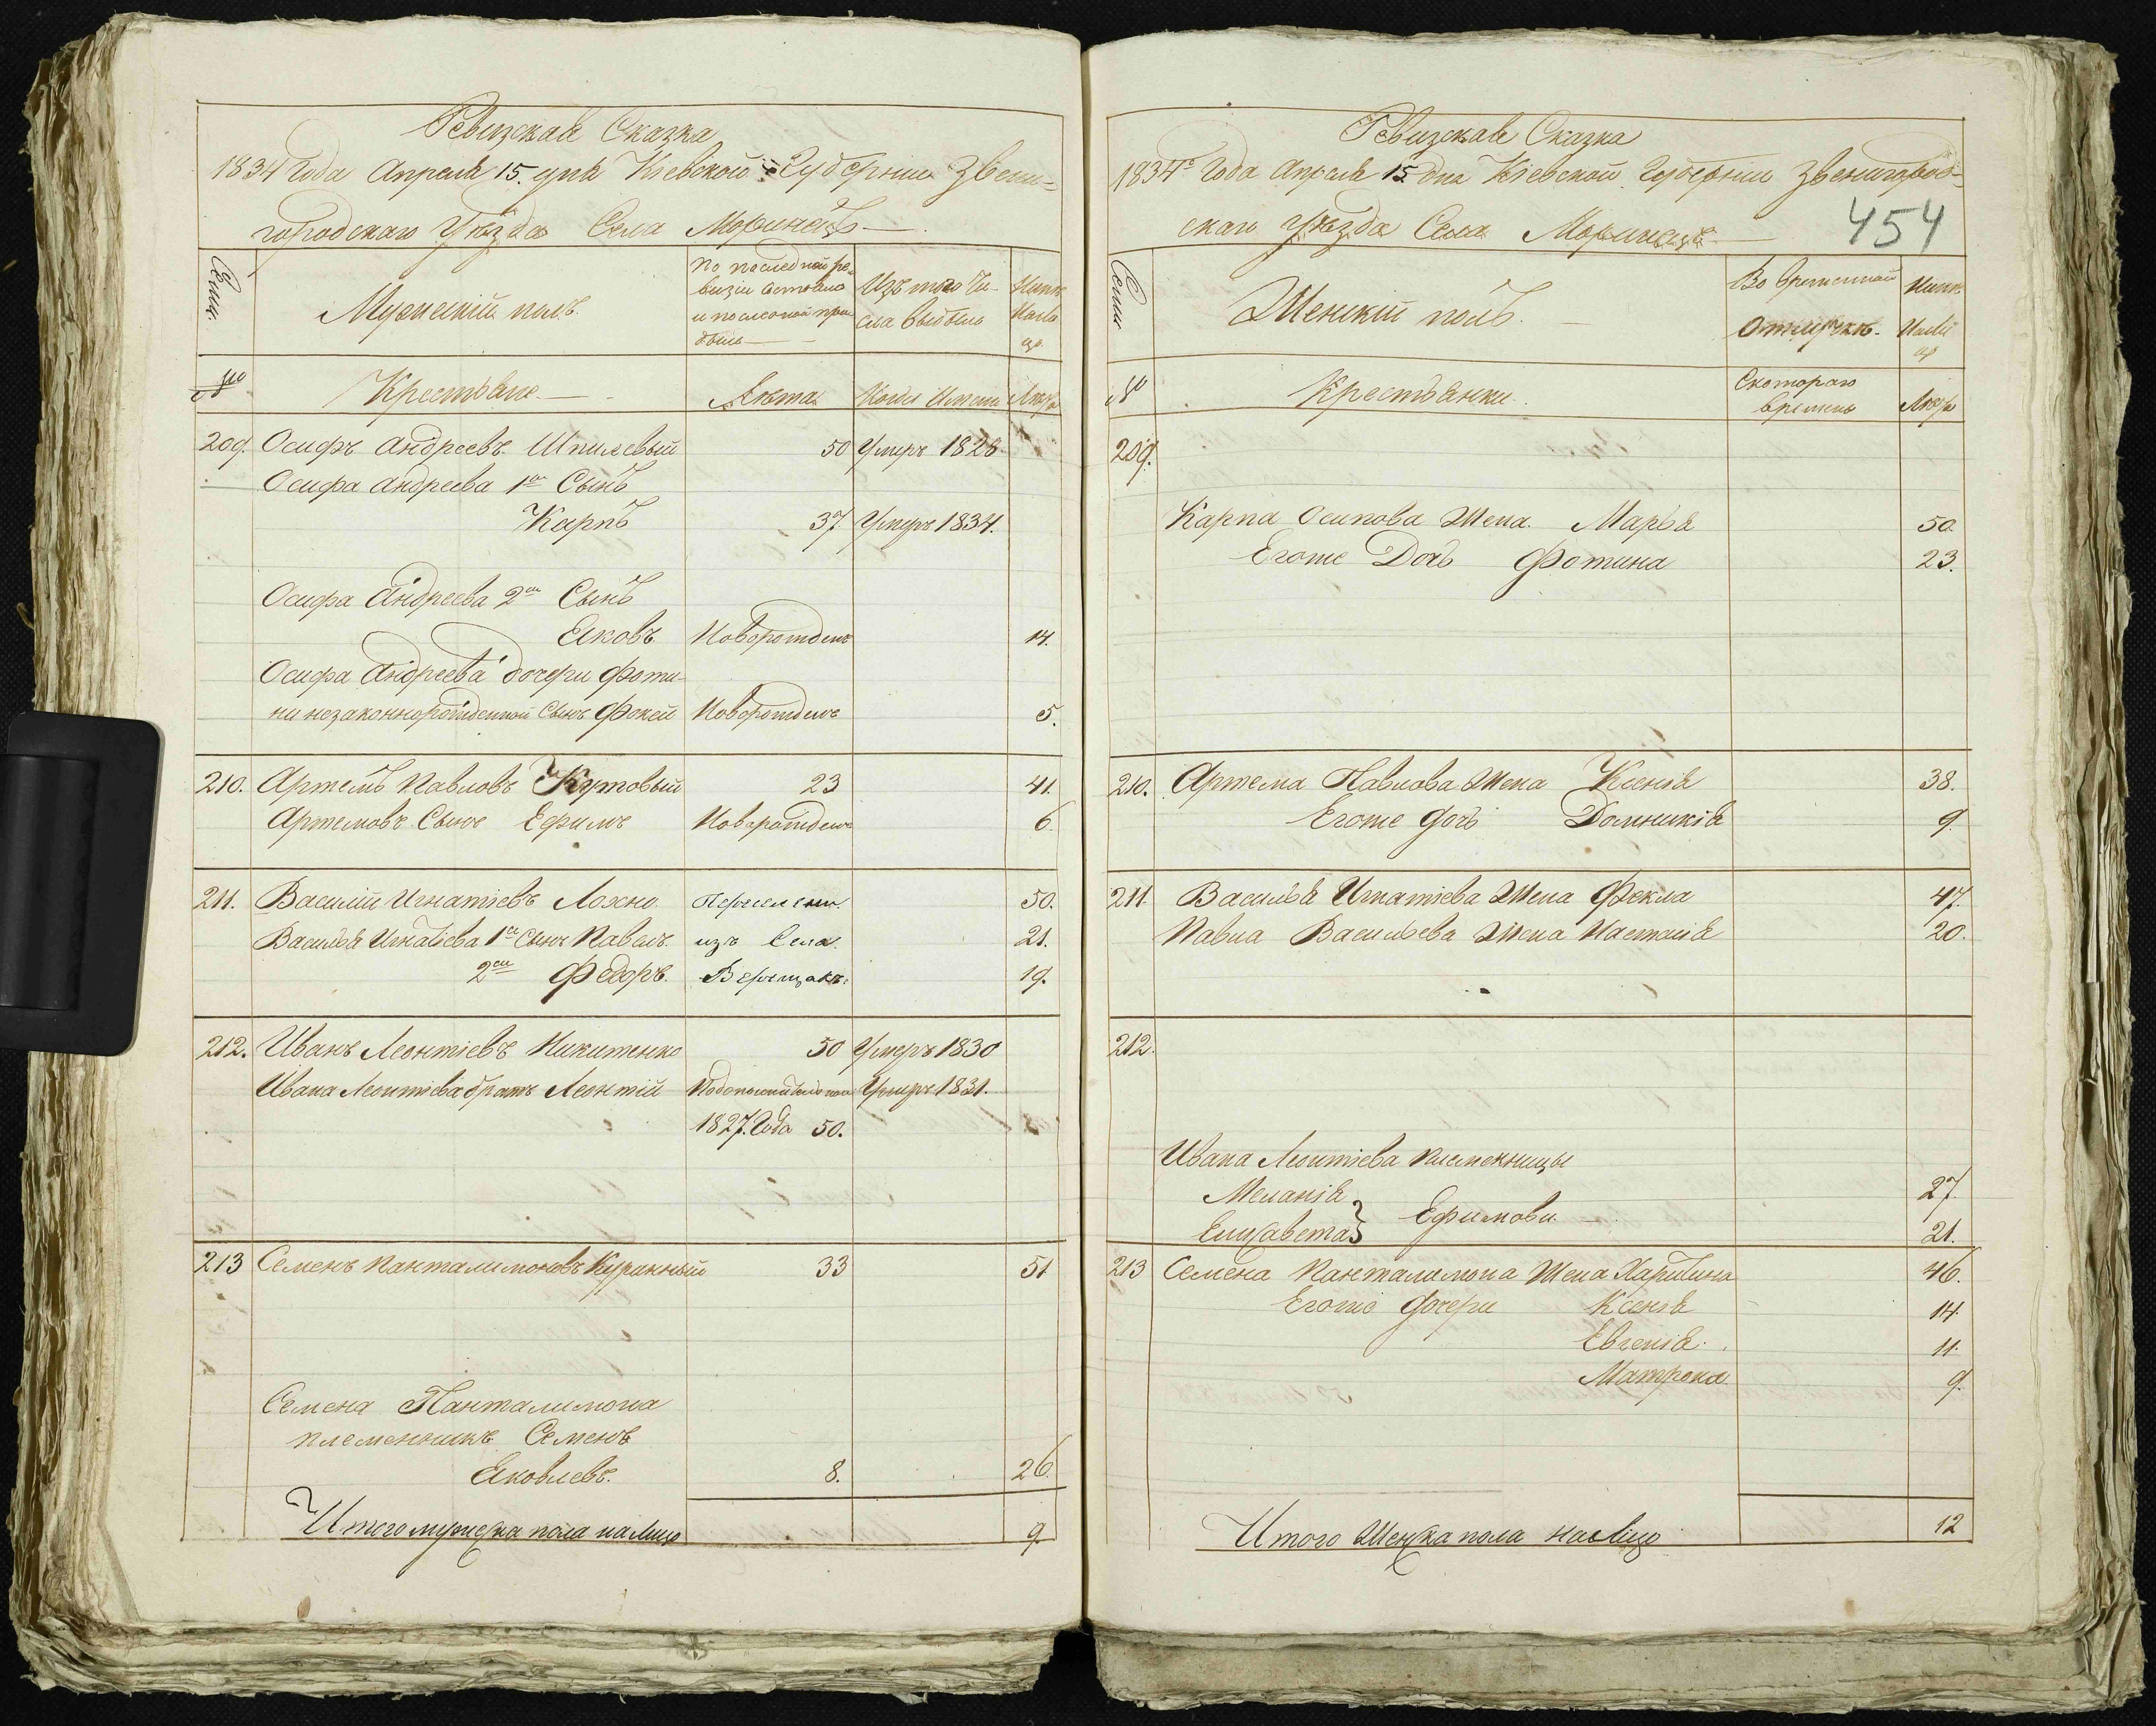 Ревизская Сказка
1834 Года Апреля 15. дня Кіевской Губерніи Звени=
городскаго Уѣзда Села Моринецъ
Семьи.
Мужескій полъ.
По последней ре-
визіи состояло
и после оной при
было
Изъ того Чи-
сла выбыло
Нынѣ
На ли
цо
№
Крестьяне
Лѣта
Когда Именно
Лѣта
209. Осифъ Андреевъ Шпилевый 50 Умеръ 1828
Осифа Андреева 1й Сынъ
Карпъ 37 Умеръ 1834.
Осифа Андреева 2й Сынъ
Яковъ Новорожденъ 14.
Осифа Андреева дочери Фоти-
ни незаконнорожденной Сынъ Фокей Новорожденъ 5.
210. Артемъ Павловъ Кутовый 23 41.
Артемовъ Сынъ Ефимъ Новорожденъ 6.
211. Василій Игнатіевъ Лохно Переселены 50.
Василья Игнатіева 1й Сынъ Павелъ изъ Села 21.
2й Федоръ. Верещакъ 19.
212. Иванъ Леонтіевъ Никитенко 50 Умеръ 1830
Ивана Леонтіева братъ Леонтій Умеръ 1831.
1827. Года 50.
213 Семенъ Панталимоновъ Курикный 33 51
Семена Панталимона
племенникъ Семенъ
Яковлевъ. 8. 26.
Итого мужеска пола на Лицо 9.
Ревизская Сказка
1834го Года Апреля 15 дня Кіевской Губерніи Звенигород=
скаго Уѣзда Села Моринецъ
454
Семьи
Женскій полъ.
Во временной
Отлучкѣ.
Нынѣ
На ли
цо
№
Крестьянки.
С котораго
времени
Лѣта
209.
Карпа Осипова Жена Марья 50.
Егоже Дочь Фотина 23.
210. Артема Павлова Жена Ксенія 38.
Егоже дочь Домникія 9.
211. Василья Игнатіева Жена Фекла 47.
Павла Васильева Жена Настасія 20.
212.
Ивана Леонтіева племенницы
Меланія 27
Елисавета } Ефимовы 21.
213 Семена Панталимона Жена Харитина 46.
Егоже дочери Ксенія 14.
Евгенія 11.
Матрона 9.
Итого Женска пола на Лицо 12